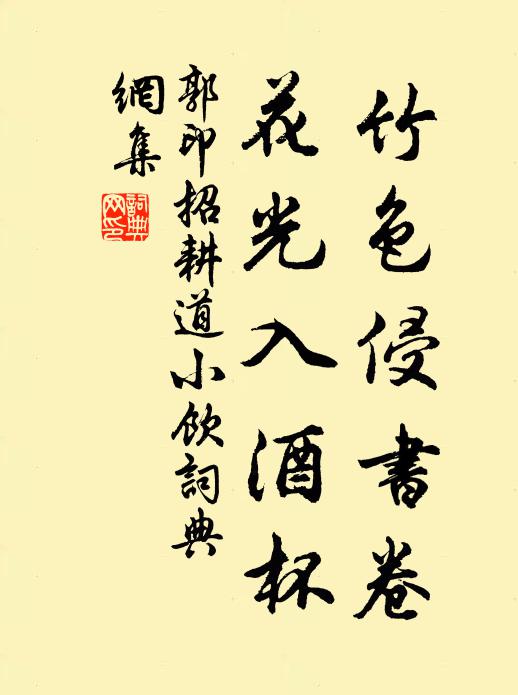 竹色侵書卷
花光入酒杯
郭印招耕道小飲詞典
網集
詞典網印